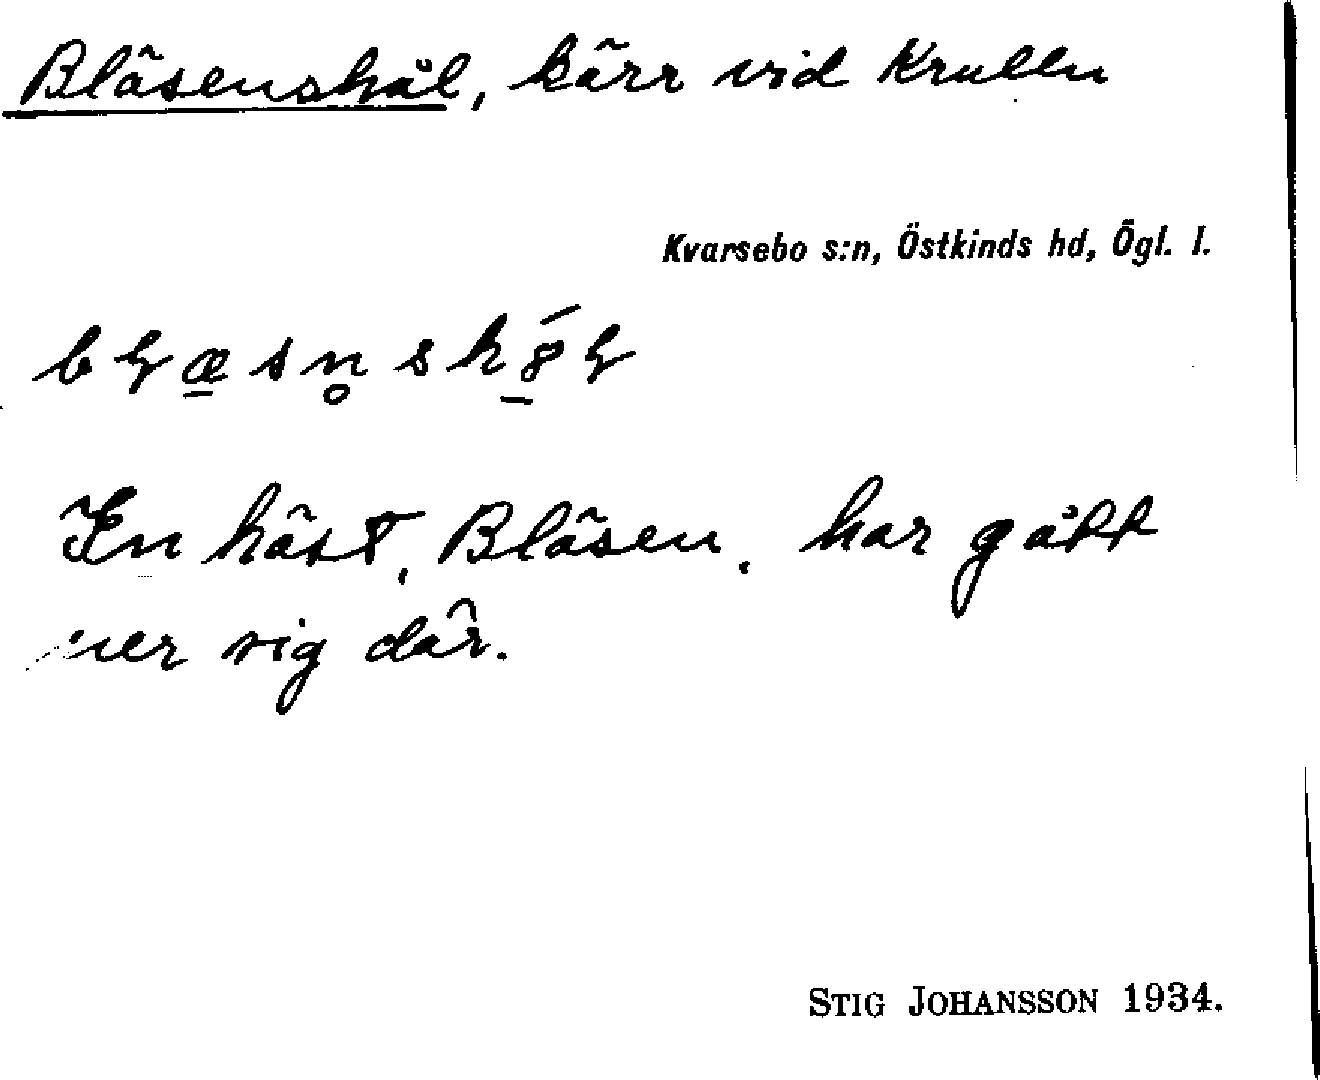 Bläsenshål, kärr vid Krullen
Kvarsebo s:n, Östkinds hd, Ögl. l.
En häst, Bläsen, har gått
ner sig där.
STIG JOHANSSON 1934.